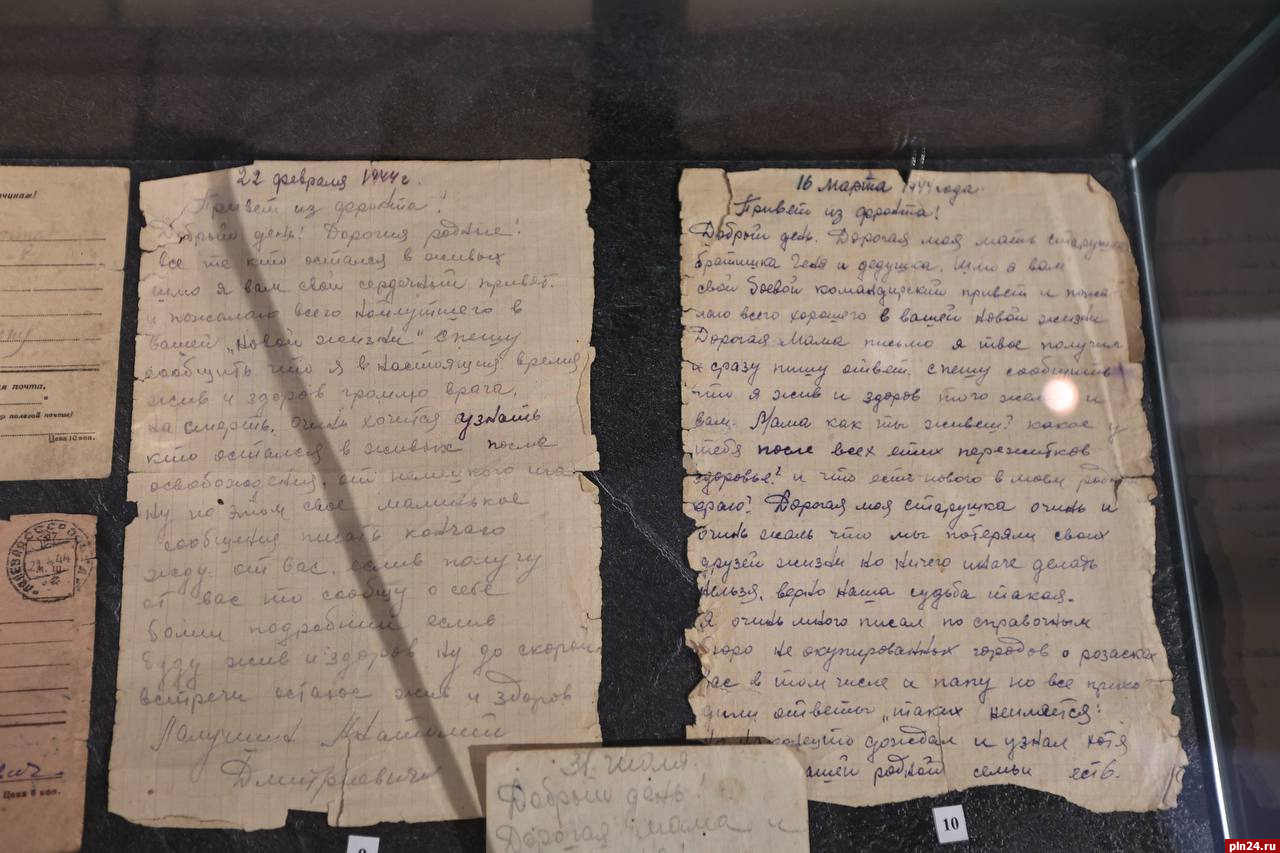 22 февраля 1944 г.
Привет из фронта!
Добрый день! Дорогия родные!
все те кто остался в живых
шлю я вам свой сердечный привет.
и пожалаю всего наилутшего в
вашей „новой жизни" спешу
сообщить что я в настоящия время
жив и здоров громлю врага,
на смерть. очинь хочится узнать
кто остался в живых после
освобождения. от немецкого
ну на этом свое малинькое
сообщения писать кончаю
жду от вас. если получу
от вас то сообщу о себе
более подробний если
буду жив и здоров ну до скорой
встречи остаюс жив и здоров
Анатолий
Дмитриевич
16 марта 1944 года.
Привет из фронта!
Добрый день. Дорогая моя мать старушка
братишка Геня и дедушка. шлю я вам
свой боевой командирский привет и пожа
лаю всего хорошего в вашей новой жизни
Дорогая Мама письмо я твое получил
и сразу пишу ответ. спешу сообщить
что я жив и здоров того желаю и
вам. Мама как ты живеш? какое у
тебя после всех етих пережитков
здоровье? и что есть нового в моем родн
краю? Дорогая моя старушка очинь и
очинь жаль что мы потеряли своих
друзей жизни но ничего иначе делать
нельзя. верно наша судьба такая.
Я очинь много писал по справочным
бюро не окупированных городов о розасках
вас в том числе и папу но все прихо
дили ответы „таких неимается:
но дождал и узнал хотя
вашей родной семьи есть.
31 Июля
Добрый день!
Дорогая мама и
чикам!
я почта,
р полевой почты)
Цена 10 коп.
СССР
21 4 44
вич.
Цена 6 коп.
9
10
pln24.ru